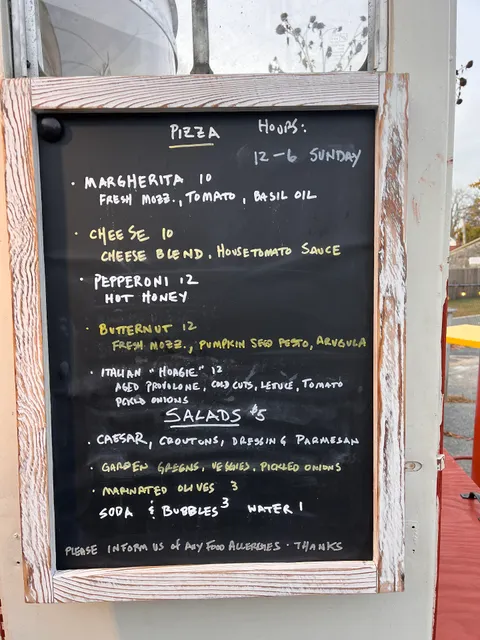 PIZZA
HOURS:
12-6 SUNDAY
• MARGHERITA 10
FRESH MOZZ., TOMATO, BASIL OIL
• CHEESE 10
CHEESE BLEND, HOUSE TOMATO SAUCE
• PEPPERONI 12
HOT HONEY
• BUTTERNUT 12
FRESH MOZZ., PUMPKIN SEED PESTO, ARUGULA
• ITALIAN "HOAGIE" 12
AGED PROVOLONE, COLD CUTS, LETUCE, TOMATO
PICKLD ONIONS
SALADS $5
• CAESAR, CROUTONS, DRESSING PARMESAN
• GARDEN GREENS, VEGGIES, PICKLED ONIONS
• MARINATED OLIVES 3
SODA & BUBBLES 3 WATER 1
PLEASE INFORM US of ANY FOOD ALLERGIES · THANKS